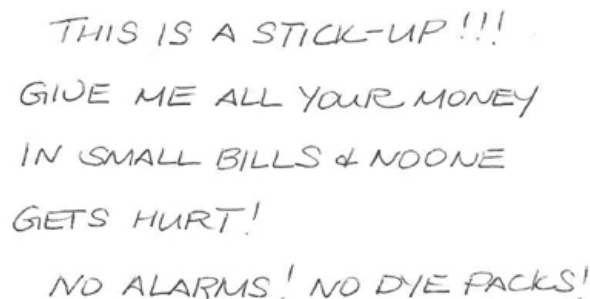 THIS IS A STICK-UP!!!
GIVE ME ALL YOUR MONEY
IN SMALL BILLS & NOONE
GETS HURT!
NO ALARMS! NO DYE PACKS!